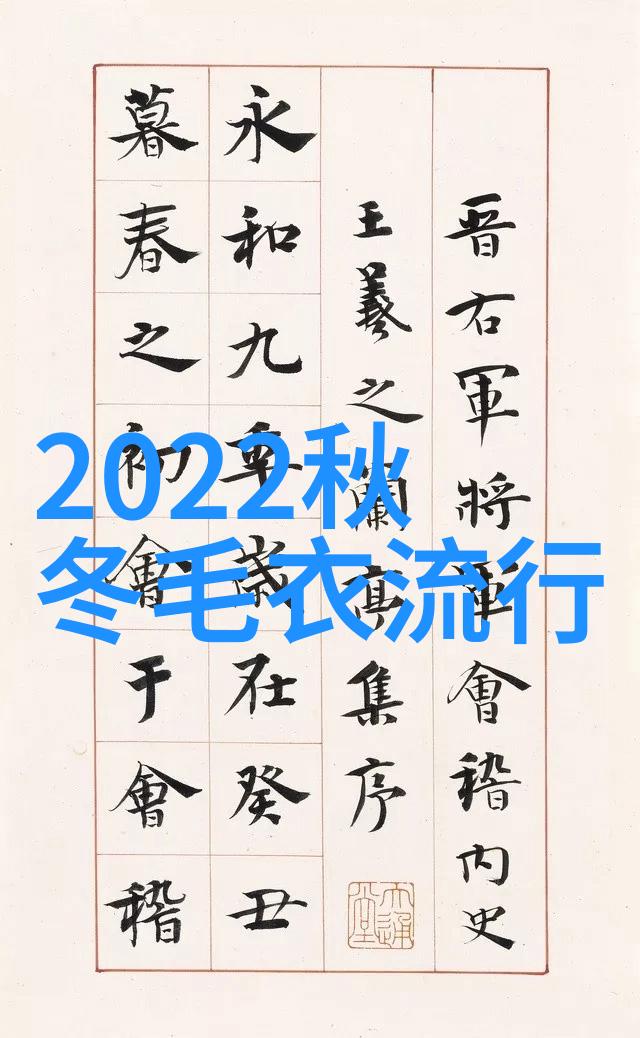 晋右軍將軍會稽内史
王羲之蘭亭集序
永和九年歲在癸丑
暮春之初會于會稽
2022秋
冬毛衣流行